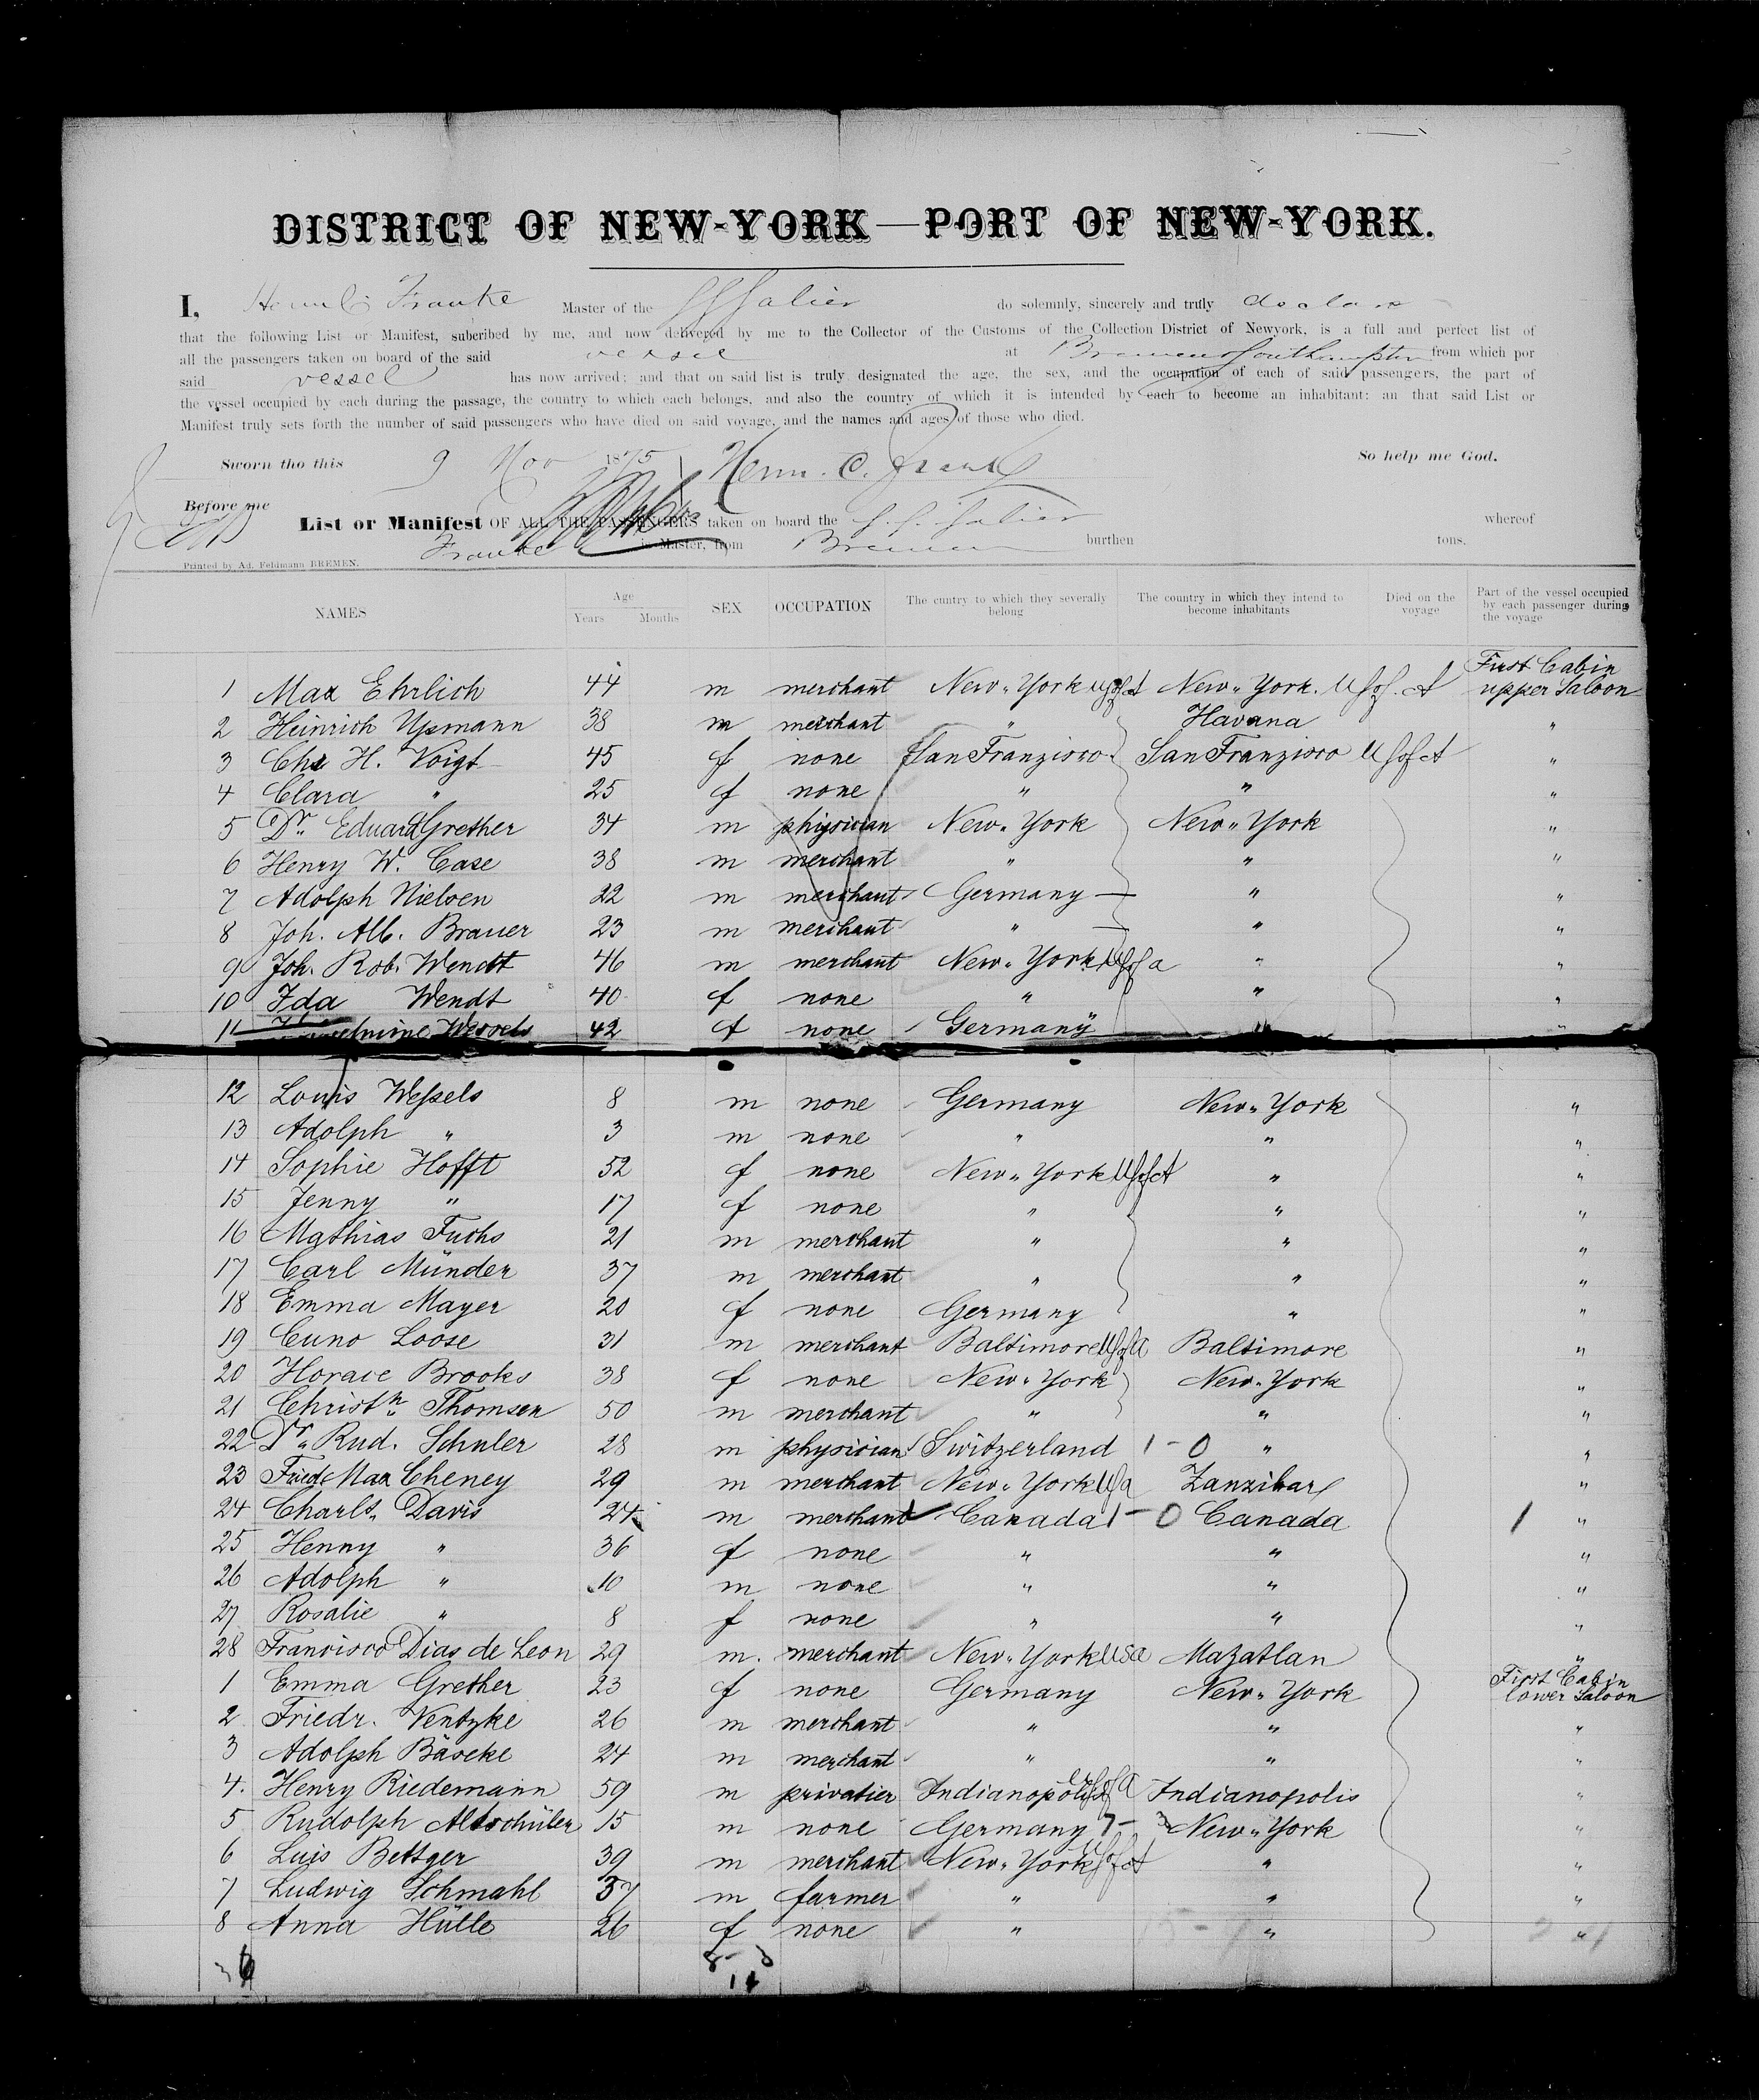 DISTRICT OF NEW-YORK—PORT OF NEW-YORK.
I, Herm C. Franke Master of the SS Salier do solemnly, sincerely and truly declare
that the following List or Manifest, subcribed by me, and now delivered by me to the Collector of the Customs of the Collection District of Newyork, is a full and perfect list of
all the passengers taken on board of the said vessel at Bremen Southampton from which por
said vessel has now arrived; and that on said list is truly designated the age, the sex, and the occupation of each of said passengers, the part of
the vessel occupied by each during the passage, the country to which each belongs, and also the country of which it is intended by each to become an inhabitant; an that said List or
Manifest truly sets forth the number of said passengers who have died on said voyage, and the names and ages of those who died.
Sworn tho this 9 Nov 1875 Herm. C. Franke So help me God.
Before me
List or Manifest OF ALL THE PASSENGERS taken on board the S.S. Salier whereof
Franke is Master, from Bremen burthen tons.
Printed by Ad. Feldmann BREMEN.
NAMES Age Years Months SEX OCCUPATION The cuntry to which they severally belong The country in which they intend to become inhabitants Died on the voyage Part of the vessel occupied by each passenger during the voyage
First Cabin
1 Max Ehrlich 44 m merchant New-York U S of A New-York. U S of A upper Saloon
2 Heinrich Upmann 38 m merchant " Havana "
3 Chs H. Voigt 45 f none San Franzisco San Franzisco U S of A "
4 Clara " 25 f none " " "
5 Dr. Eduard Grether 34 m phisician New-York New-York "
6 Henry W. Case 38 m merchant " " "
7 Adolph Nielsen 22 m merchant Germany " "
8 Joh. Alb. Brauer 23 m merchant " " "
9 Joh. Rob. Wendt 46 m merchant New-York U S of a " "
10 Ida Wendt 40 f none " " "
11 Wessels 42 f none Germany " "
12 Louis Weſsels 8 m none Germany New-York "
13 Adolph " 3 m none " " "
14 Sophie Hofft 52 f none New-York U S of A " "
15 Jenny " 17 f none " " "
16 Mathias Fuchs 21 m merchant " " "
17 Carl Münder 37 m merchant " " "
18 Emma Mayer 20 f none Germany " "
19 Cuno Loose 31 m merchant Baltimore U S of A Baltimore "
20 Horace Brooks 38 f none New-York New-York "
21 Christn. Thomsen 50 m merchant " " "
22 Dr. Rud. Schuler 28 m physician Switzerland 1 - 0 " "
23 Fried Max Cheney 29 m merchant New-York USa Zanzibar "
24 Charls. Davis 24 m merchant Canada 1 - 0 Canada 1 "
25 Henny " 36 f none " " "
26 Adolph " 10 m none " " "
27 Rosalie " 8 f none " " "
28 Francisco Dias de Leon 29 m. merchant New-York USa Mazatlan "
First Cabin
1 Emma Grether 23 f none Germany New-York lower Saloon
2 Friedr. Ventzke 26 m merchant " " "
3 Adolph Bäseke 24 m merchant " " "
4. Henry Riedemann 59 m privatier Indianopolis U S of A Indianopolis "
5 Rudolph Altschüler 15 m none Germany 7 - 3 New-York "
6 Luis Bettger 39 m merchant New-York U S of A " "
7 Ludwig Schmahl 37 m farmer " " "
8 Anna Hülle 26 f none " " "